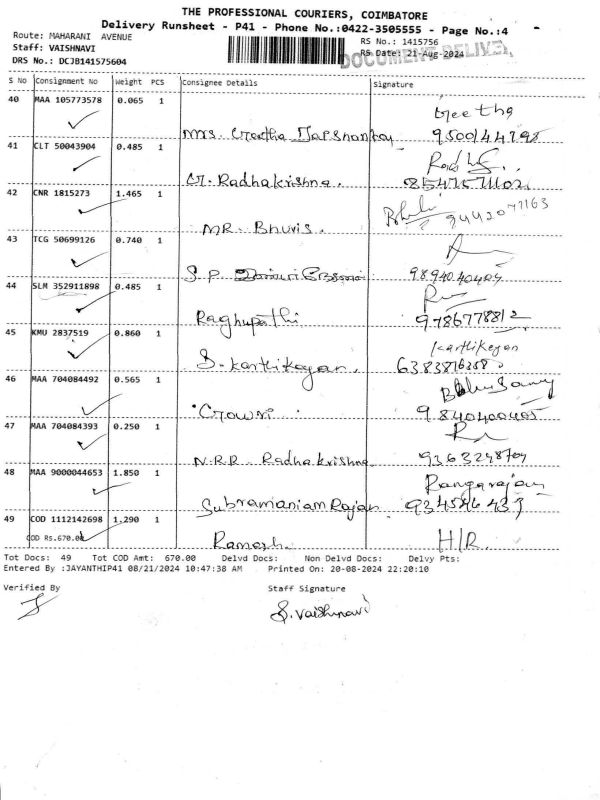 THE PROFESSIONAL COURIERS, COIMBATORE
Delivery Runsheet - P41 - Phone No.:0422-3505555 - Page No.:4
Route: MAHARANI AVENUE
RS No.: 1415756
Staff: VAISHNAVI
RS Date: 21-Aug-2024
DOCUMENT DELIVE
DRS No.: DCJB141575604
S No Consignment No Weight PCS Consignee Details Signature
40 MAA 105773578 0.065 1 Geetha
Mrs. Geetha
41 CLT 50043904 0.485 1
G. Radhakrishna.
42 CNR 1815273 1.465 1
MR. Bhuvis.
43 TCG 50699126 0.740 1
S.P. 9894040404
44 SLM 352911898 0.485 1
Raghupathi 9786778812
45 KMU 2837519 0.860 1 Karthikeyan
S. Karthikeyan.
46 MAA 704084492 0.565 1
Gowri 9840400405
47 MAA 704084393 0.250 1
N.R.R. Radhakrishna 9363248704
48 MAA 9000044653 1.850 1 Rangarajan
Subramaniam Rajan
49 COD 1112142698 1.290 1
COD Rs.670.00 Ramesh. H/R.
Tot Docs: 49 Tot COD Amt: 670.00 Delvd Docs: Non Delvd Docs: Delvy Pts:
Entered By :JAYANTHIP41 08/21/2024 10:47:38 AM Printed On: 20-08-2024 22:20:10
Verified By Staff Signature
S. Vaishnavi